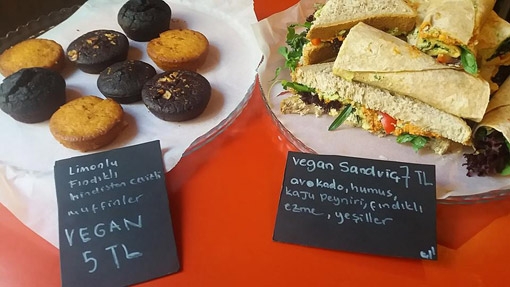 Limonlu
Fındıklı
hindistan cevizli
muffinler
VEGAN
5 TL
vegan Sandviç 7 TL
avokado, humus,
kaju peyniri, fındıklı
ezme, yeşiller